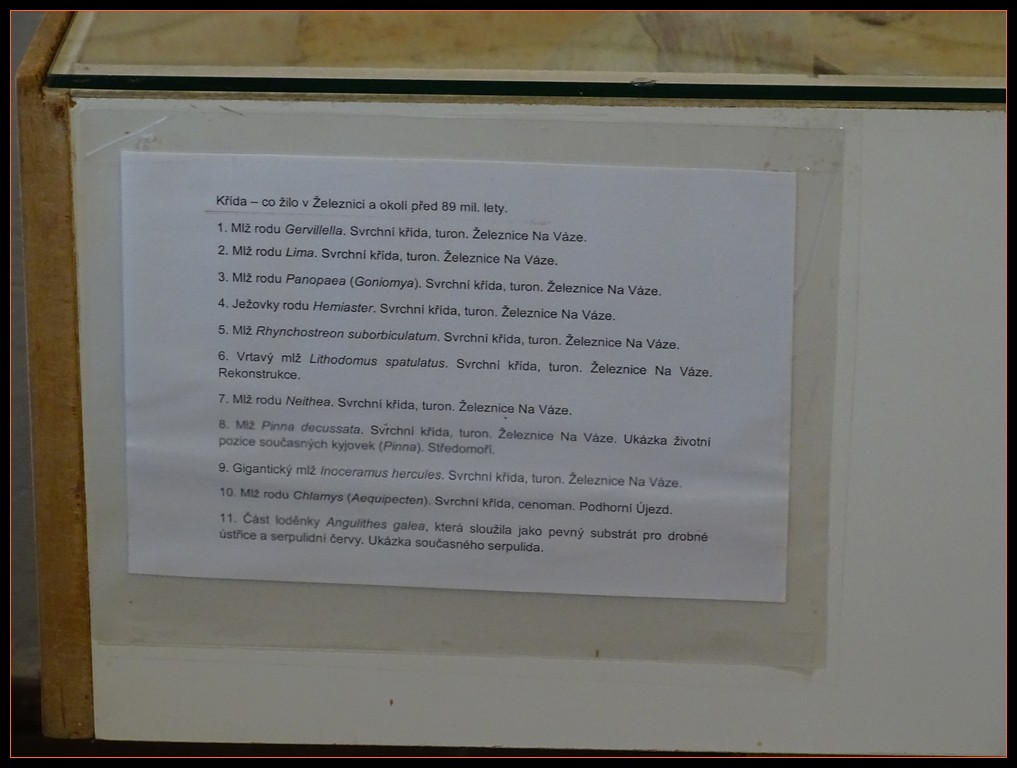 Křída – co žilo v Železnici a okolí před 89 mil. lety.
1. Mlž rodu Gervillella. Svrchní křída, turon. Železnice Na Váze.
2. Mlž rodu Lima. Svrchní křída, turon. Železnice Na Váze.
3. Mlž rodu Panopaea (Goniomya). Svrchní křída, turon. Železnice Na Váze.
4. Ježovky rodu Hemiaster. Svrchní křída, turon. Železnice Na Váze.
5. Mlž Rhynchostreon suborbiculatum. Svrchní křída, turon. Železnice Na Váze.
6. Vrtavý mlž Lithodomus spatulatus. Svrchní křída, turon. Železnice Na Váze.
Rekonstrukce.
7. Mlž rodu Neithea. Svrchní křída, turon. Železnice Na Váze.
8. Mlž Pinna decussata. Svrchní křída, turon. Železnice Na Váze. Ukázka životní
pozice současných kyjovek (Pinna). Středomoří.
9. Gigantický mlž Inoceramus hercules. Svrchní křída, turon. Železnice Na Váze.
10. Mlž rodu Chlamys (Aequipecten). Svrchní křída, cenoman. Podhorní Újezd.
11. Část loděnky Angulithes galea, která sloužila jako pevný substrát pro drobné
ústřice a serpulidní červy. Ukázka současného serpulida.